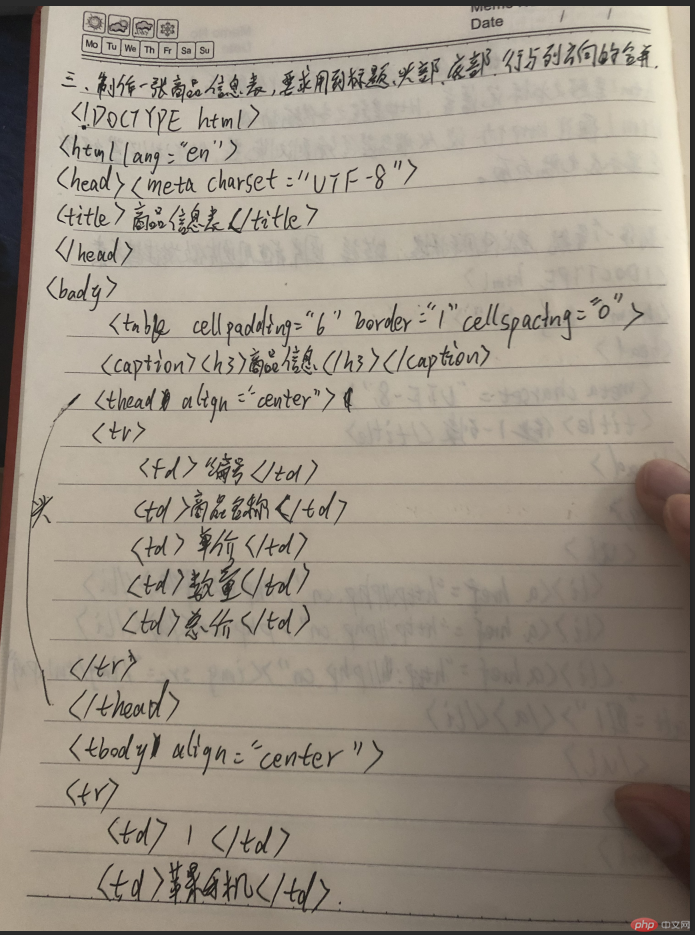 Date / /
Mo Tu We Th Fr Sa Su
三、制作一张商品信息表,要求用到标题、头部、底部、行与列方向的合并.
<!DOCTYPE html>
<html lang="en">
<head><meta charset="UTF-8">
<title>商品信息表</title>
</head>
<bady>
<table cellpadding="6" border="1" cellspacing="0">
<caption><h3>商品信息</h3></caption>
<thead align="center">
<tr>
<td>编号</td>
头
<td>商品名称</td>
<td>单价</td>
<td>数量</td>
<td>总价</td>
</tr>
</thead>
<tbody align="center">
<tr>
<td>1</td>
<td>苹果手机</td>.
php 中文网